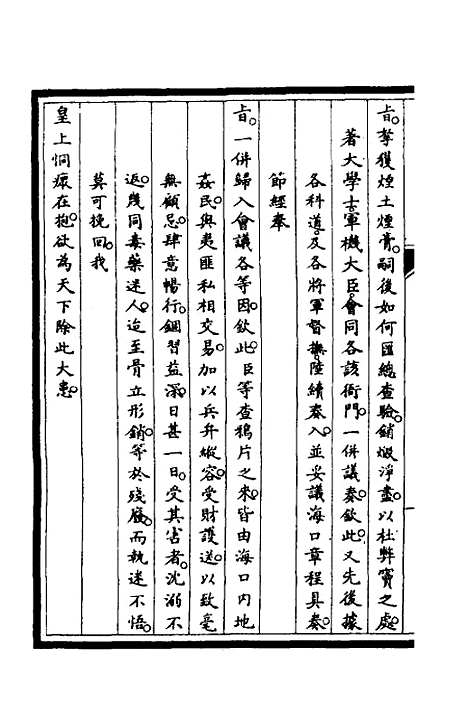 旨。拏獲煙土煙膏。嗣後如何匯總查驗。銷燬淨盡。以杜弊竇之處。
著大學士軍機大臣會同各該衙門一併議奏。欽此。又先後據
各科道。及各將軍督撫。陸續奏入。並妥議海口章程具奏。
節經奉
旨。一併歸入會議各等因。欽此。臣等查鴉片之來。皆由海口內地
姦民。與夷匪私相交易。加以兵弁縱容。受財護送。以致毫
無顧忌。肆意暢行。錮習益深。日甚一日。受其害者。沈溺不
返。幾同毒藥迷人。迨至骨立形銷。等於殘廢。而執迷不悟。
莫可挽回。我
皇上恫瘝在抱。欲為天下除此大患。